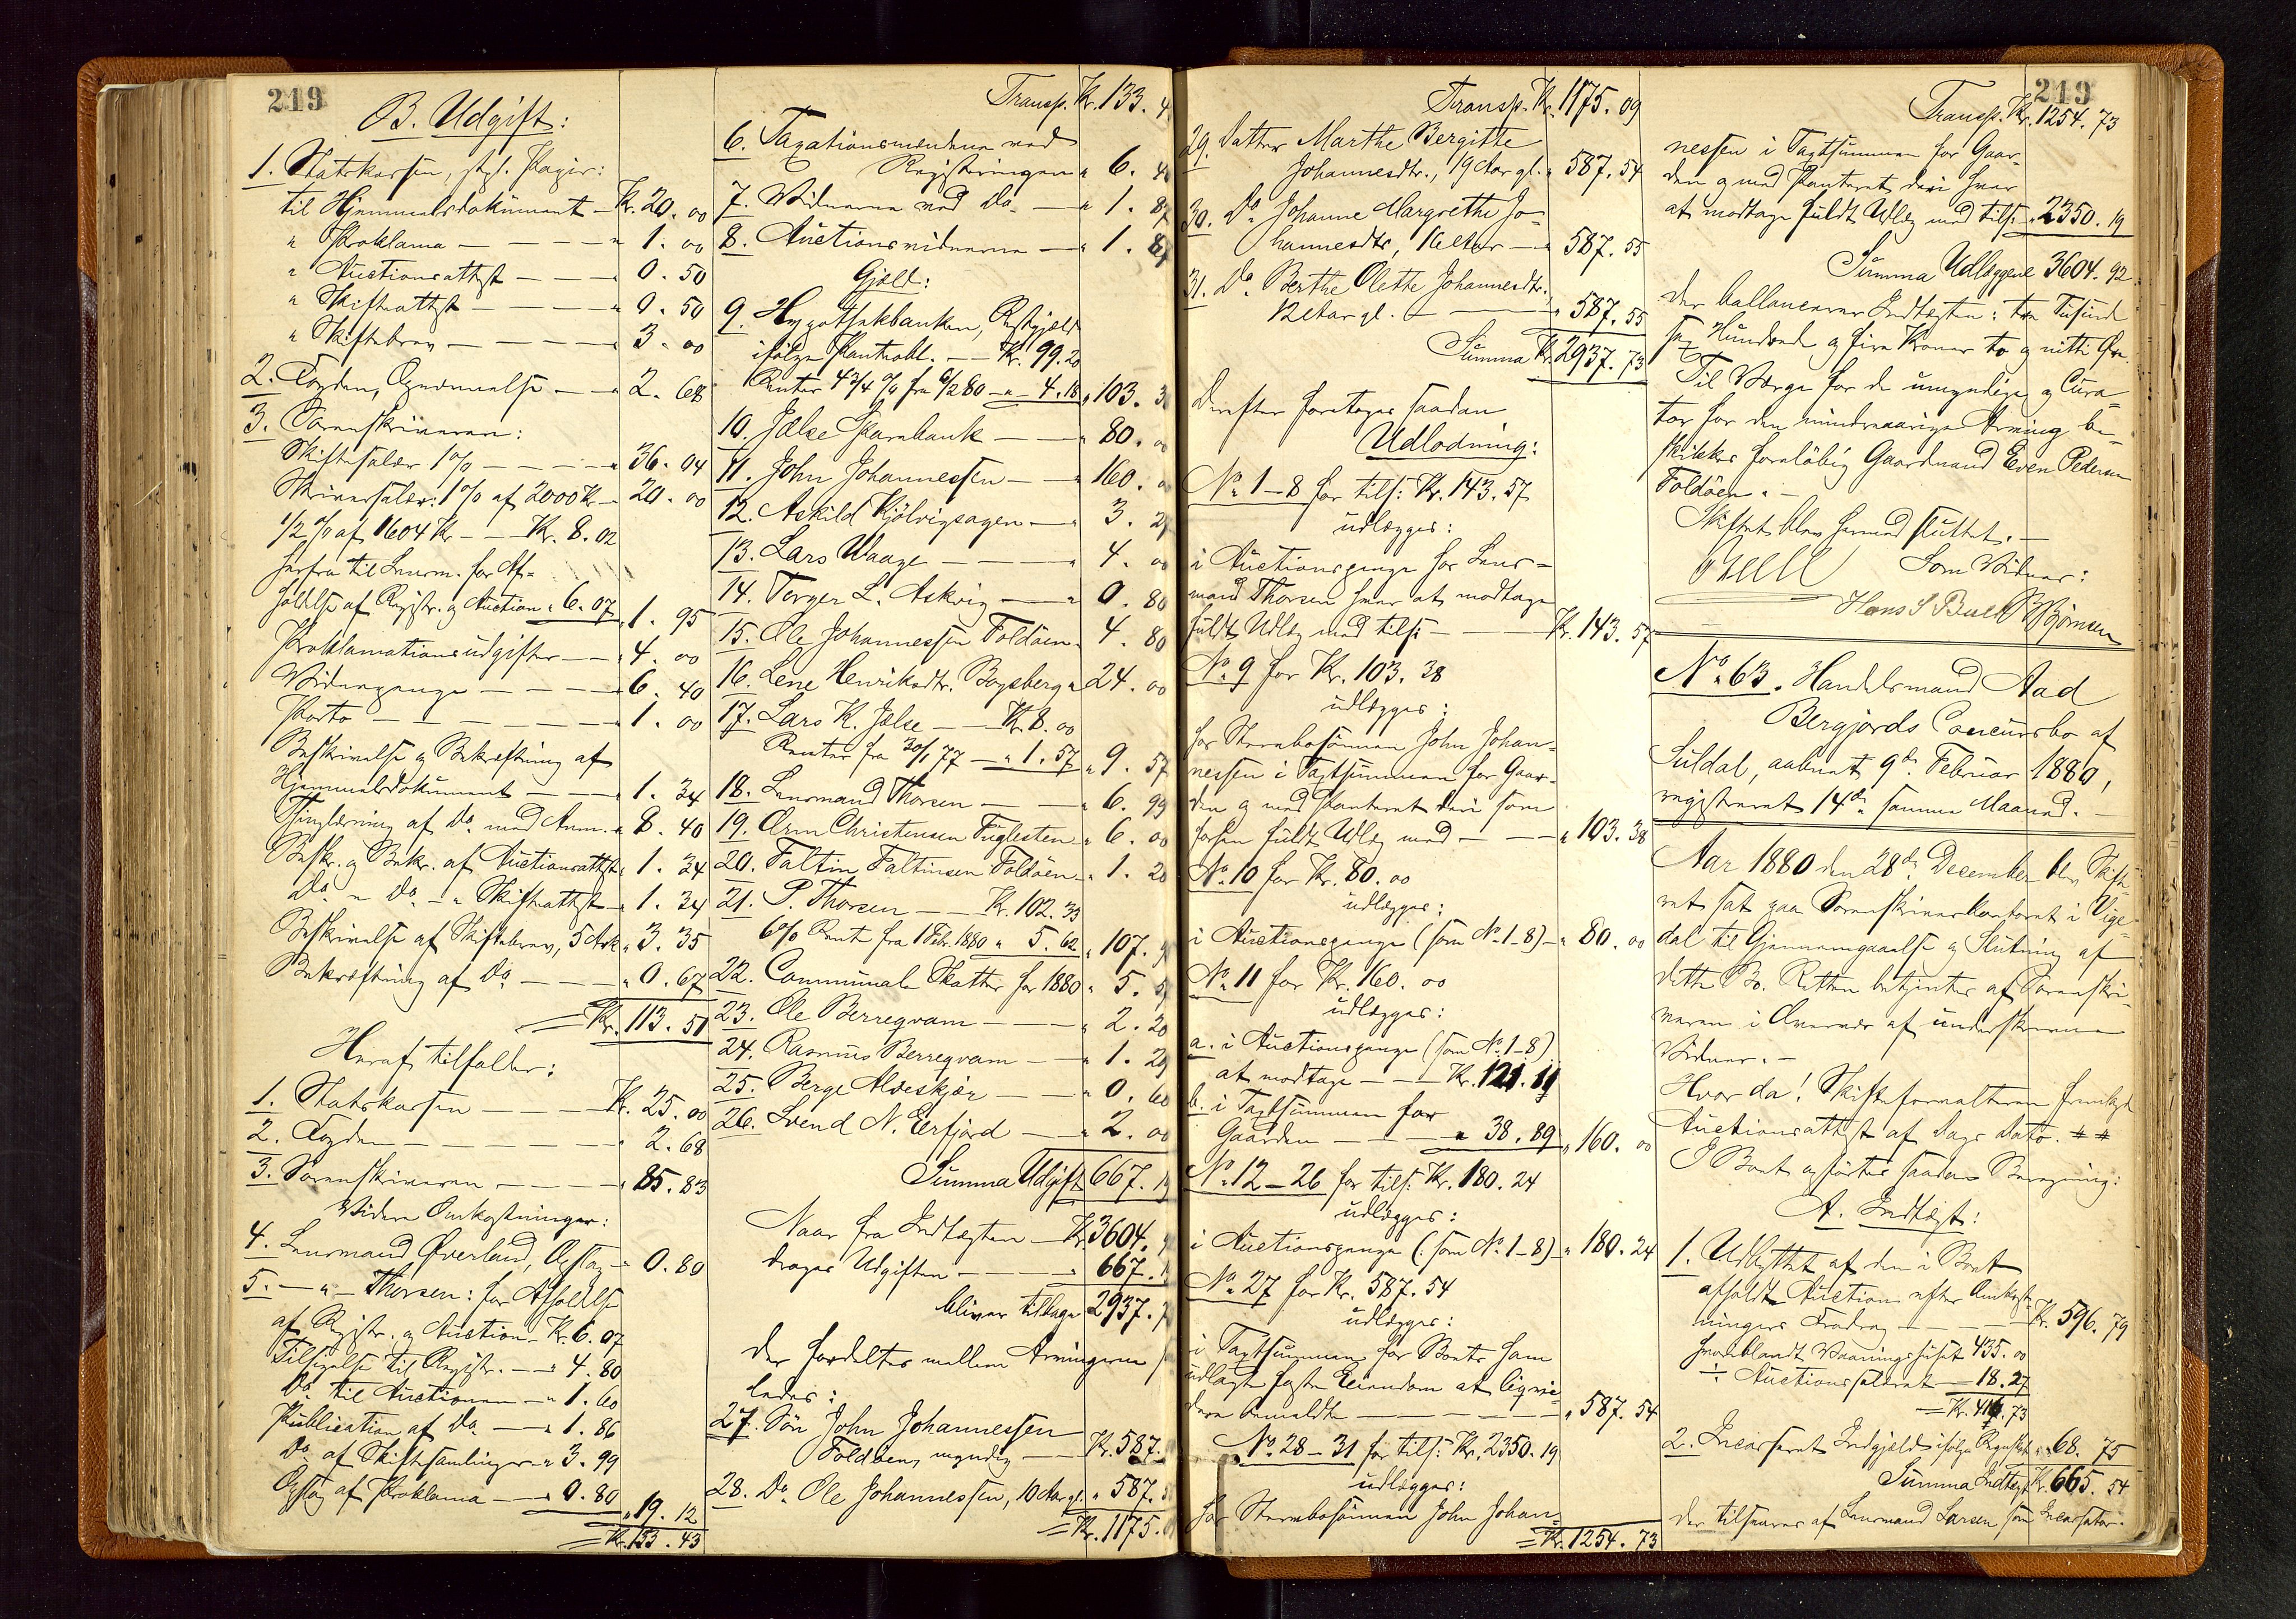 219
B. Udgift:
1. Statskassen, stpl. Papir:
til Hjemmelsdokument — Kr. 20. 00
" Proklama — — — " 1. 00
" Auctionsattest — — — " 0. 50
" Skifteattest — — — " 0. 50
" Skiftebrev — — — " 3. 00
2. Fogden, Opnævnelse — — " 2. 68
3. Sorenskriveren:
Skiftesalær 1% — — — " 36. 04
Skriversalær: 1% af 2000 Kr — 20. 00
1/2 % af 1604 Kr — — Kr. 8. 02
herfra til Lensm. for Af-
holdelse af Registr. og Auction " 6. 07 " 1. 95
Proklamationsudgifter — — " 4. 00
Vidnepenge — — — " 6. 40
Porto — — — — — " 1. 00
Beskrivelse og Bekræftning af
Hjemmelsdokument — — " 1. 34
Thinglæsning af Do. med Anm. " 8. 40
Beskr. og Bekr. af Auctionsattest " 1. 34
Do. " Do. — " Skifteattest — " 1. 34
Beskrivelse af Skiftebrev, 5 Ark " 3. 35
Bekræftning af Do — — — " 0. 67
= Kr. 113. 51
Heraf tilfalder:
1. Statskassen — — — Kr. 25. 00
2. Fogden — — — — " 2. 68
3. Sorenskriveren — — — " 85. 83
Videre Omkostninger:
4. Lensmand Øverland, Opslag — " 0. 80
5. — " — Thorsen: for Afholdelse
af Registr. og Auction — Kr. 6. 07
Tilsigelse til Registr. — " 4. 80
Do. til Auctionen — " 1. 60
Publication af Do. — " 1. 86
Do. af Skiftesamlinger — " 3. 99
Opslag af Proklama — — " 0. 80 " 19. 12
= Kr. 133. 43
Transp. Kr. 133. 4
6. Taxationsmændene ved
Registreringen " 6. 40
7. Vidnerne ved Do. — " 1. 87
8. Auctionsvidnerne — " 1. 87
Gjæld:
9. Hypothekbanken, Restgjæld
ifølge Panteobl. — — Kr. 99. 20
Renter 4 3/4 % fra 6/2 80 — " — 4. 18 " 103. 3
10. Jælse Sparebank — — " 80. 00
11. John Johannessen — — " 160. 0
12. Askild Kjölvigsagen — " 3. 2
13. Lars Waage — — — " 4. 00
14. Torger L. Askvig — — " 0. 80
15. Ole Johannessen Foldöen " 4. 80
16. Lene Henriksdtr. Bogsberg " 24. 00
17. Lars K. Jelse — — Kr. 8. 00
Renter fra 30/1 77 — " 1. 57 " 9. 57
18. Lensmand Thorsen — — " 6. 99
19. Orm Christensen Fuglesten — " 6. 00
20. Faltin Faltinsen Foldöen — " 1. 20
21. P. Thorsen — — Kr. 102. 33
6% Rente fra 1 Febr. 1880 " 5. 62 " 107. 9
22. Communale Skatter for 1880 " 5. 5
23. Ole Berreqvam — — — " 2. 20
24. Rasmus Berreqvam — — " 1. 29
25. Berge Alveskjær — — " 0. 60
26. Svend N. Eerfjord — — " 2. 00
Summa Udgift 667. 19
Naar fra Indtægten — Kr. 3604. 9
drages Udgiften — — — " 667. 1
bliver tilbage 2937. 7
der fordeltes mellem Arvingerne s
ledes:
27. Sön John Johannessen
Foldöen, myndig — Kr. 587.
28. Do. Ole Johannessen, 10 Aar gl. " 587.
= Kr. 1175.
Transp. Kr. 1175. 09
29. Datter Marthe Bergitte
Johannesdtr., 19 Aar gl. " 587. 54
30. Do. Johanne Margrethe Jo-
hannesdtr, 16 Aar — " 587. 55
31. Do. Berthe Olette Johannesdtr.,
12 Aar gl. — — — " 587. 55
Summa Kr. 2937. 73
Derefter foretoges saadan
Udlodning:
No. 1–8 for tils: Kr. 143. 57
udlægges:
i Auctionspenge hos Lens-
mand Thorsen hvor at modtage
fuldt Udlæg med tils: — — Kr. 143. 57
No. 9 for Kr. 103. 38
udlægges:
hos Stervbosönnen John Johan-
nessen i Taxtsummen for Gaar-
den og med Panteret deri som
forhen fuldt Udlæg med — — " 103. 38
No. 10 for Kr. 80. 00
udlægges:
i Auctionspenge (som No. 1–8) — " 80. 00
No. 11 for Kr. 160. 00
udlægges:
a. i Auctionspenge (som No. 1–8)
at modtage — — Kr. 121. 11
b. i Taxtsummen for
Gaarden — — — " 38. 89 " 160. 00
No. 12–26 for tils: Kr. 180. 24
udlægges:
i Auctionspenge (: som No. 1–8) " 180. 24
No. 27 for Kr. 587. 54
udlægges:
i Taxtsummen for Boets ham
udlagte faste Eiendom at liqvi-
dere anmeldte — — — — " 587. 54
No. 28–31 for tils: Kr. 2350. 19
udlægges:
hos Stervbosönnen John Johan-
= Kr. 1254. 73
219
Transp. Kr. 1254. 73
nessen i Taxtsummen for Gaar-
den og med Panteret deri hvor
at modtage fuldt Udlæg med tils: " 2350. 19
Summa Udlæggene 3604. 92
der ballancerer Indtægten: tre Tusind
sex Hundrede og fire Kroner to og nitti Øre.
Til Værge for de umyndige og Cura-
tor for den mindreaarige Arving be-
skikkes foreløbig Gaardmand Even Pedersen
Foldöen. —
Skiftet blev hermed sluttet. —
Buell Som Vidner:
Hans S Buell B Björnsen
No. 63. Handelsmand Aad
Bergjords Concursbo af
Suldal, aabnet 9de Februar 1880,
registreret 14de samme Maaned. —
Aar 1880 den 28de December blev Skifte-
ret sat paa Sorenskriverkontoret i Vige-
dal til Gjennemgaaelse og Slutning af
dette Bo. Retten betjentes af Sorenskri-
veren i Overvær af underskrevne
Vidner. —
Hvor da! Skifteforvalteren fremlagde
Auctionsattest af Dags Dato. ++
I Boet opførtes saadan Beregning:
A. Indtægt:
1. Udbyttet af den i Boet
afholdte Auction efter Omkost-
ningers Fradrag — — — Kr. 596. 79
hvoriblandt Vaaningshuset 435. 00
÷ Auctionssalæret — 18. 27
= Kr. 416. 73
2. Incasseret Indgjæld ifølge Regnskab " 68. 75
Summa Indtægt Kr. 665. 54
der tilsvares af Lensmand Larsen som Incassator.